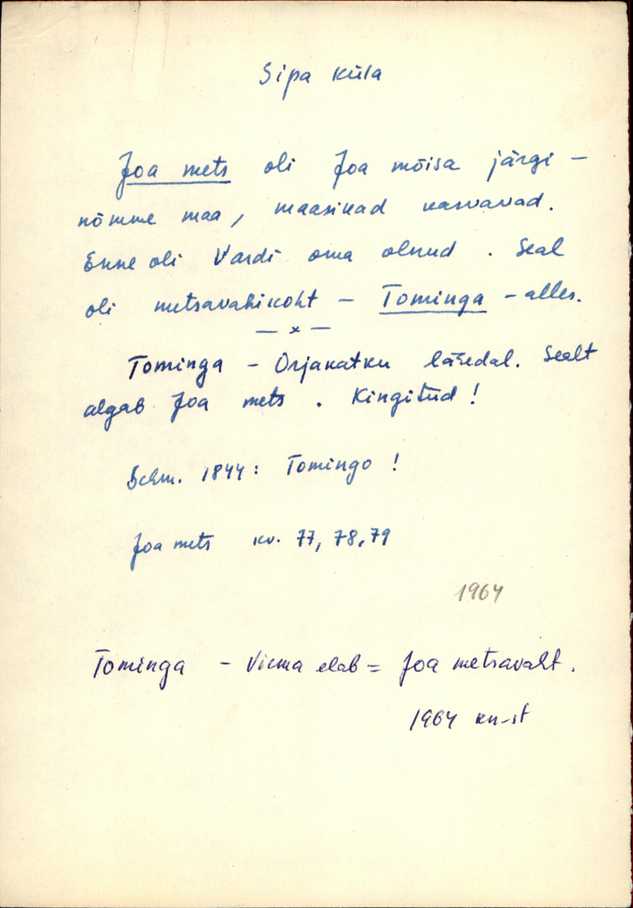 Sipa küla
Joa mets oli Joa mõisa järgi -
nõmme maa, maasikad kasvavad.
Enne oli Vardi oma olnud. Seal
oli metsavahikoht - Tominga - alles.
- x -
Tominga - Orjakatku lähedal. Sealt
algab Joa mets. Kingitud!
Schm. 1844: Tomingo!
Joa mets kv. 77, 78, 79
1964
Tominga - Viema elab = Joa metsavaht.
1964 kn-st